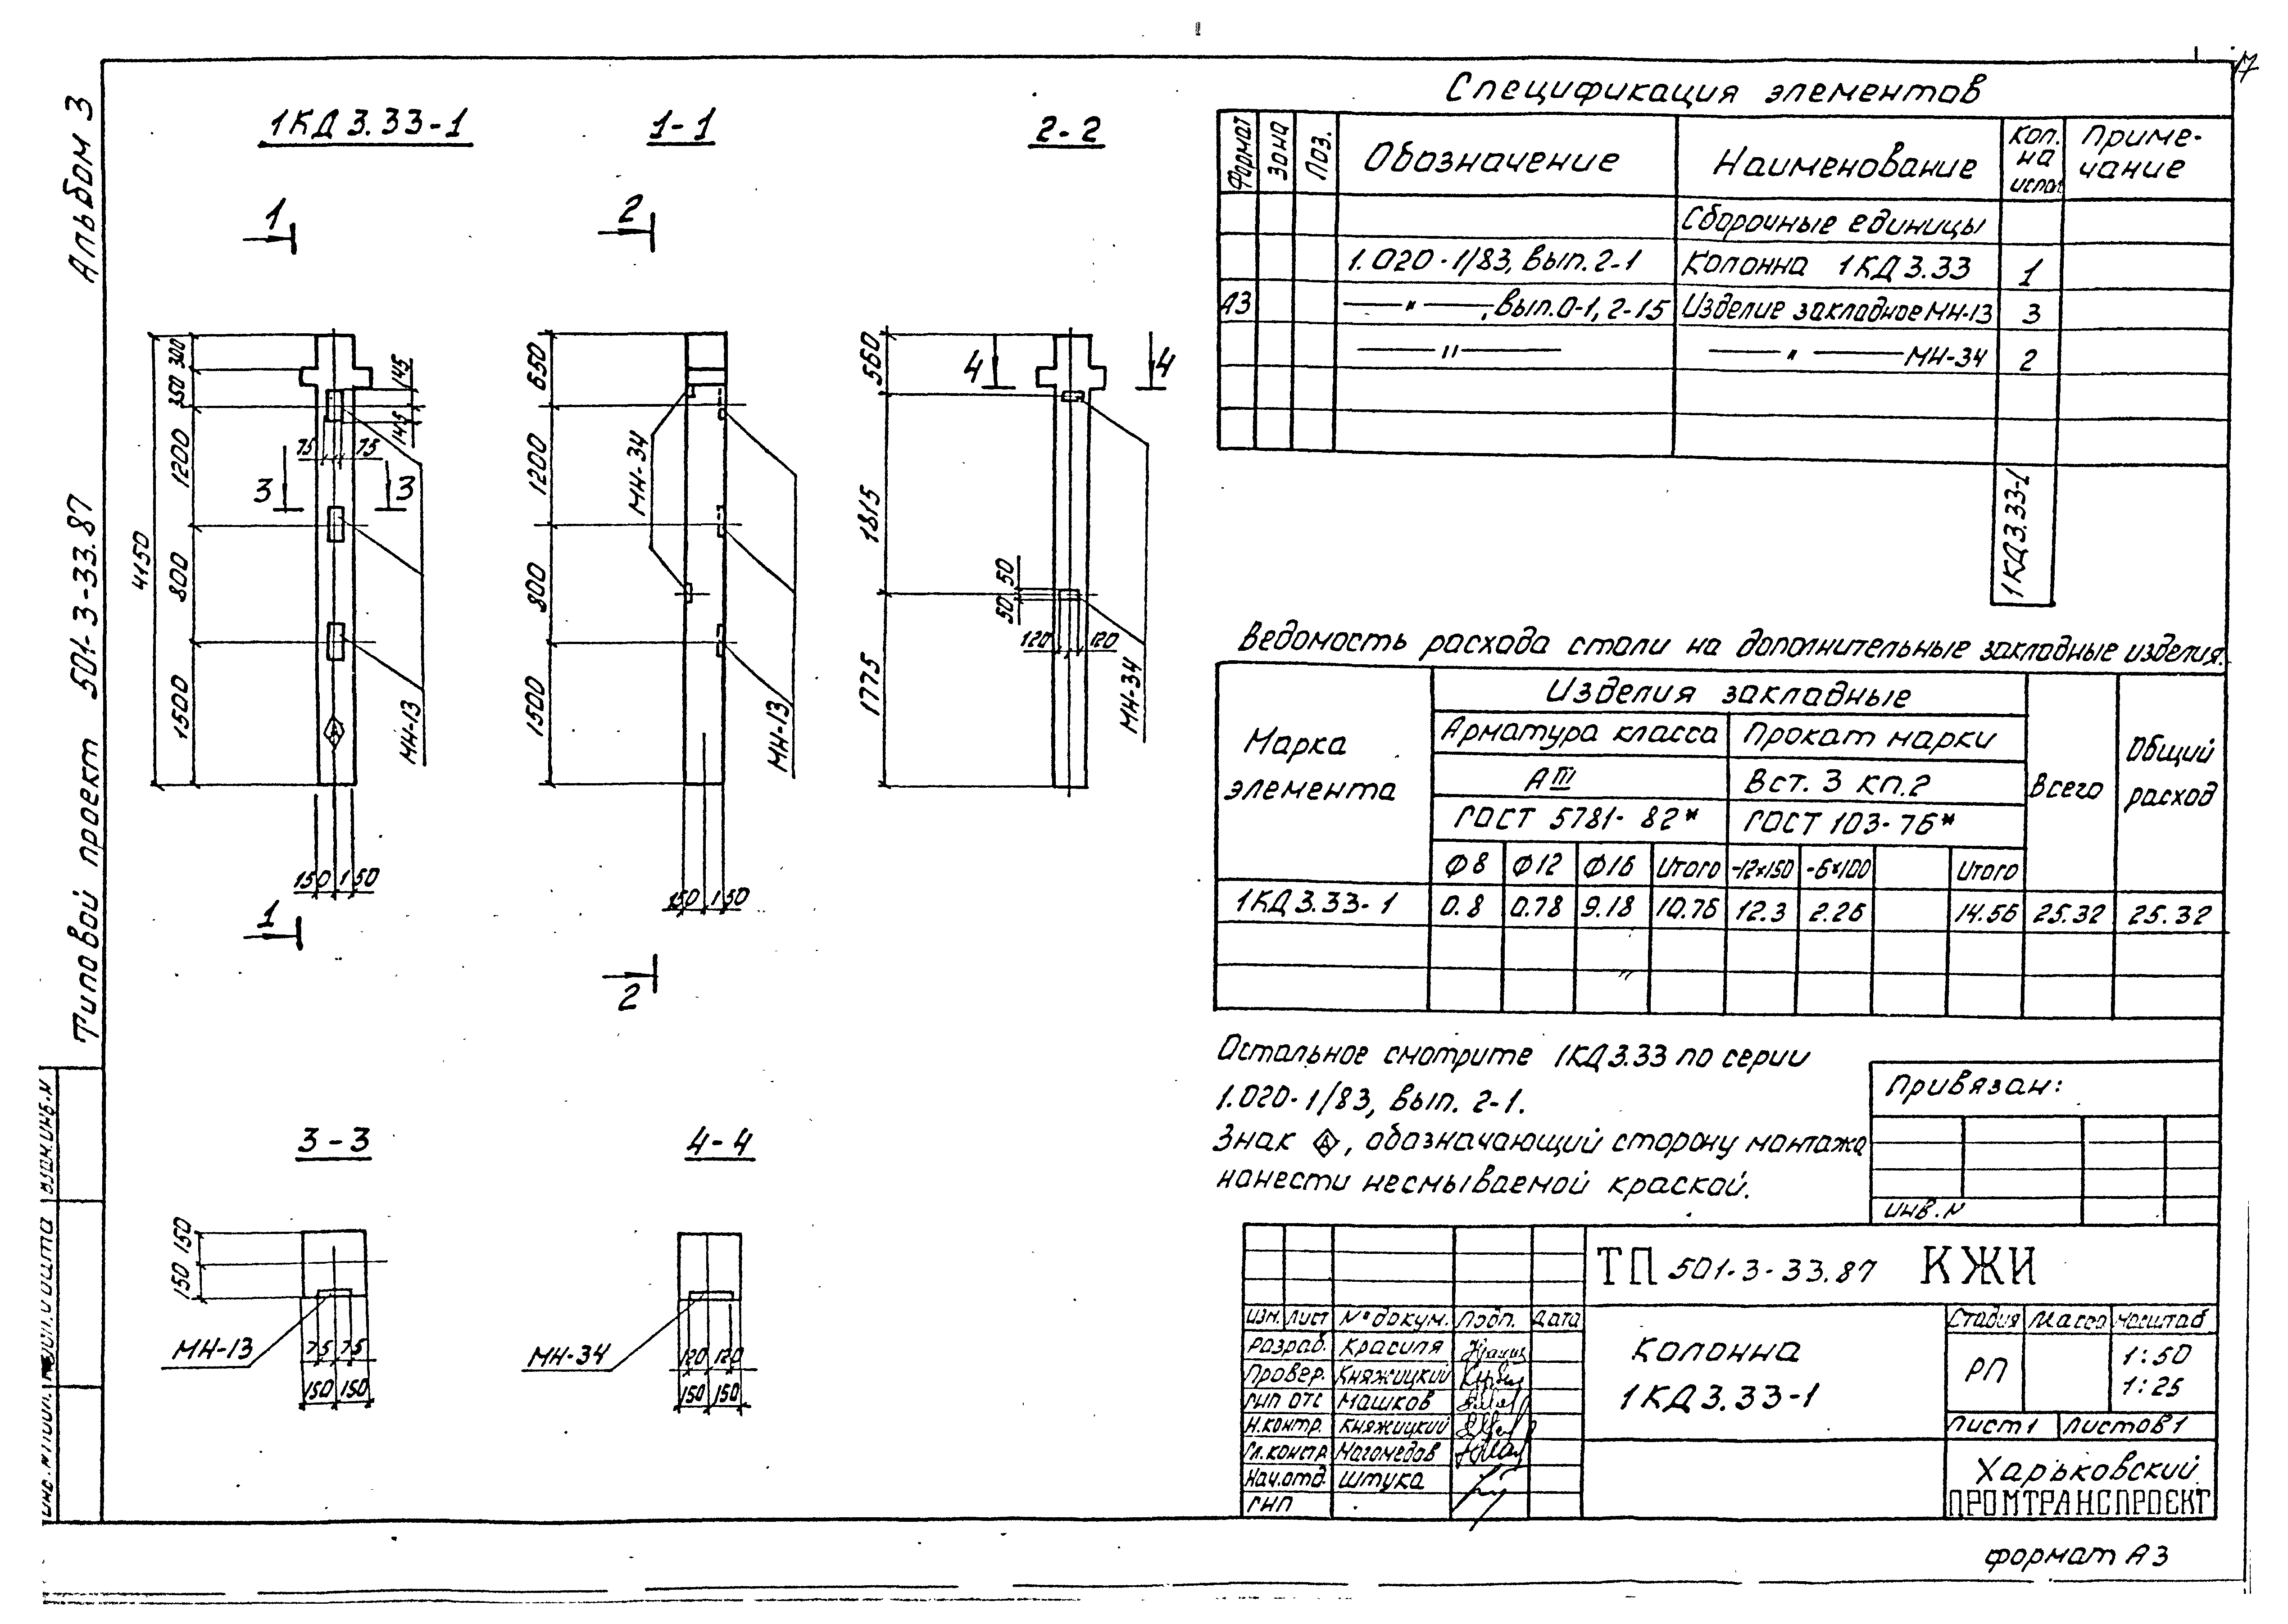 17
Альбом 3
Типовой проект 501-3-33.87
1КД3.33-1
1-1
2-2
1
2
4
4
300
350
1200
800
1500
4150
145
145
75
75
3
3
МН-13
150
150
1
650
1200
800
1500
МН-34
МН-13
150
150
2
560
1815
1775
50
50
120
120
МН-34
3-3
150
150
МН-13
75
75
150
150
4-4
МН-34
120
120
150
150
Спецификация элементов
Формат
Зона
Поз.
Обозначение
Наименование
Кол. на испол.
Приме-
чание
Сборочные единицы
1.020-1/83, вып. 2-1
Колонна 1КД3.33
1
А3
—"—, вып. 0-1, 2-15
Изделие закладное МН-13
3
—"—
—"— МН-34
2
1КД3.33-1
Ведомость расхода стали на дополнительные закладные изделия.
Марка
элемента
Изделия закладные
Арматура класса
Прокат марки
А III
Вст. 3 кп. 2
ГОСТ 5781-82*
ГОСТ 103-76*
Всего
Общий
расход
Ф8
Ф12
Ф16
Итого
-12х150
-6х100
Итого
1КД3.33-1
0.8
0.78
9.18
10.76
12.3
2.26
14.56
25.32
25.32
Остальное смотрите 1КД3.33 по серии
1.020-1/83, вып. 2-1.
Знак А, обозначающий сторону монтажа
нанести несмываемой краской.
Привязан:
инв. N
ТП 501-3-33.87 КЖИ
Изм.
Лист
№ докум.
Подп.
Дата
Разраб.
Красиля
Провер.
Княжицкий
ГИП ОТС
Машков
Н.контр.
Княжицкий
Гл.констр.
Магомедов
Нач.отд.
Штука
ГИП
Колонна
1КД3.33-1
Стадия
Масса
Масштаб
РП
1:50
1:25
Лист 1
Листов 1
Харьковский
ПРОМТРАНСПРОЕКТ
формат А3